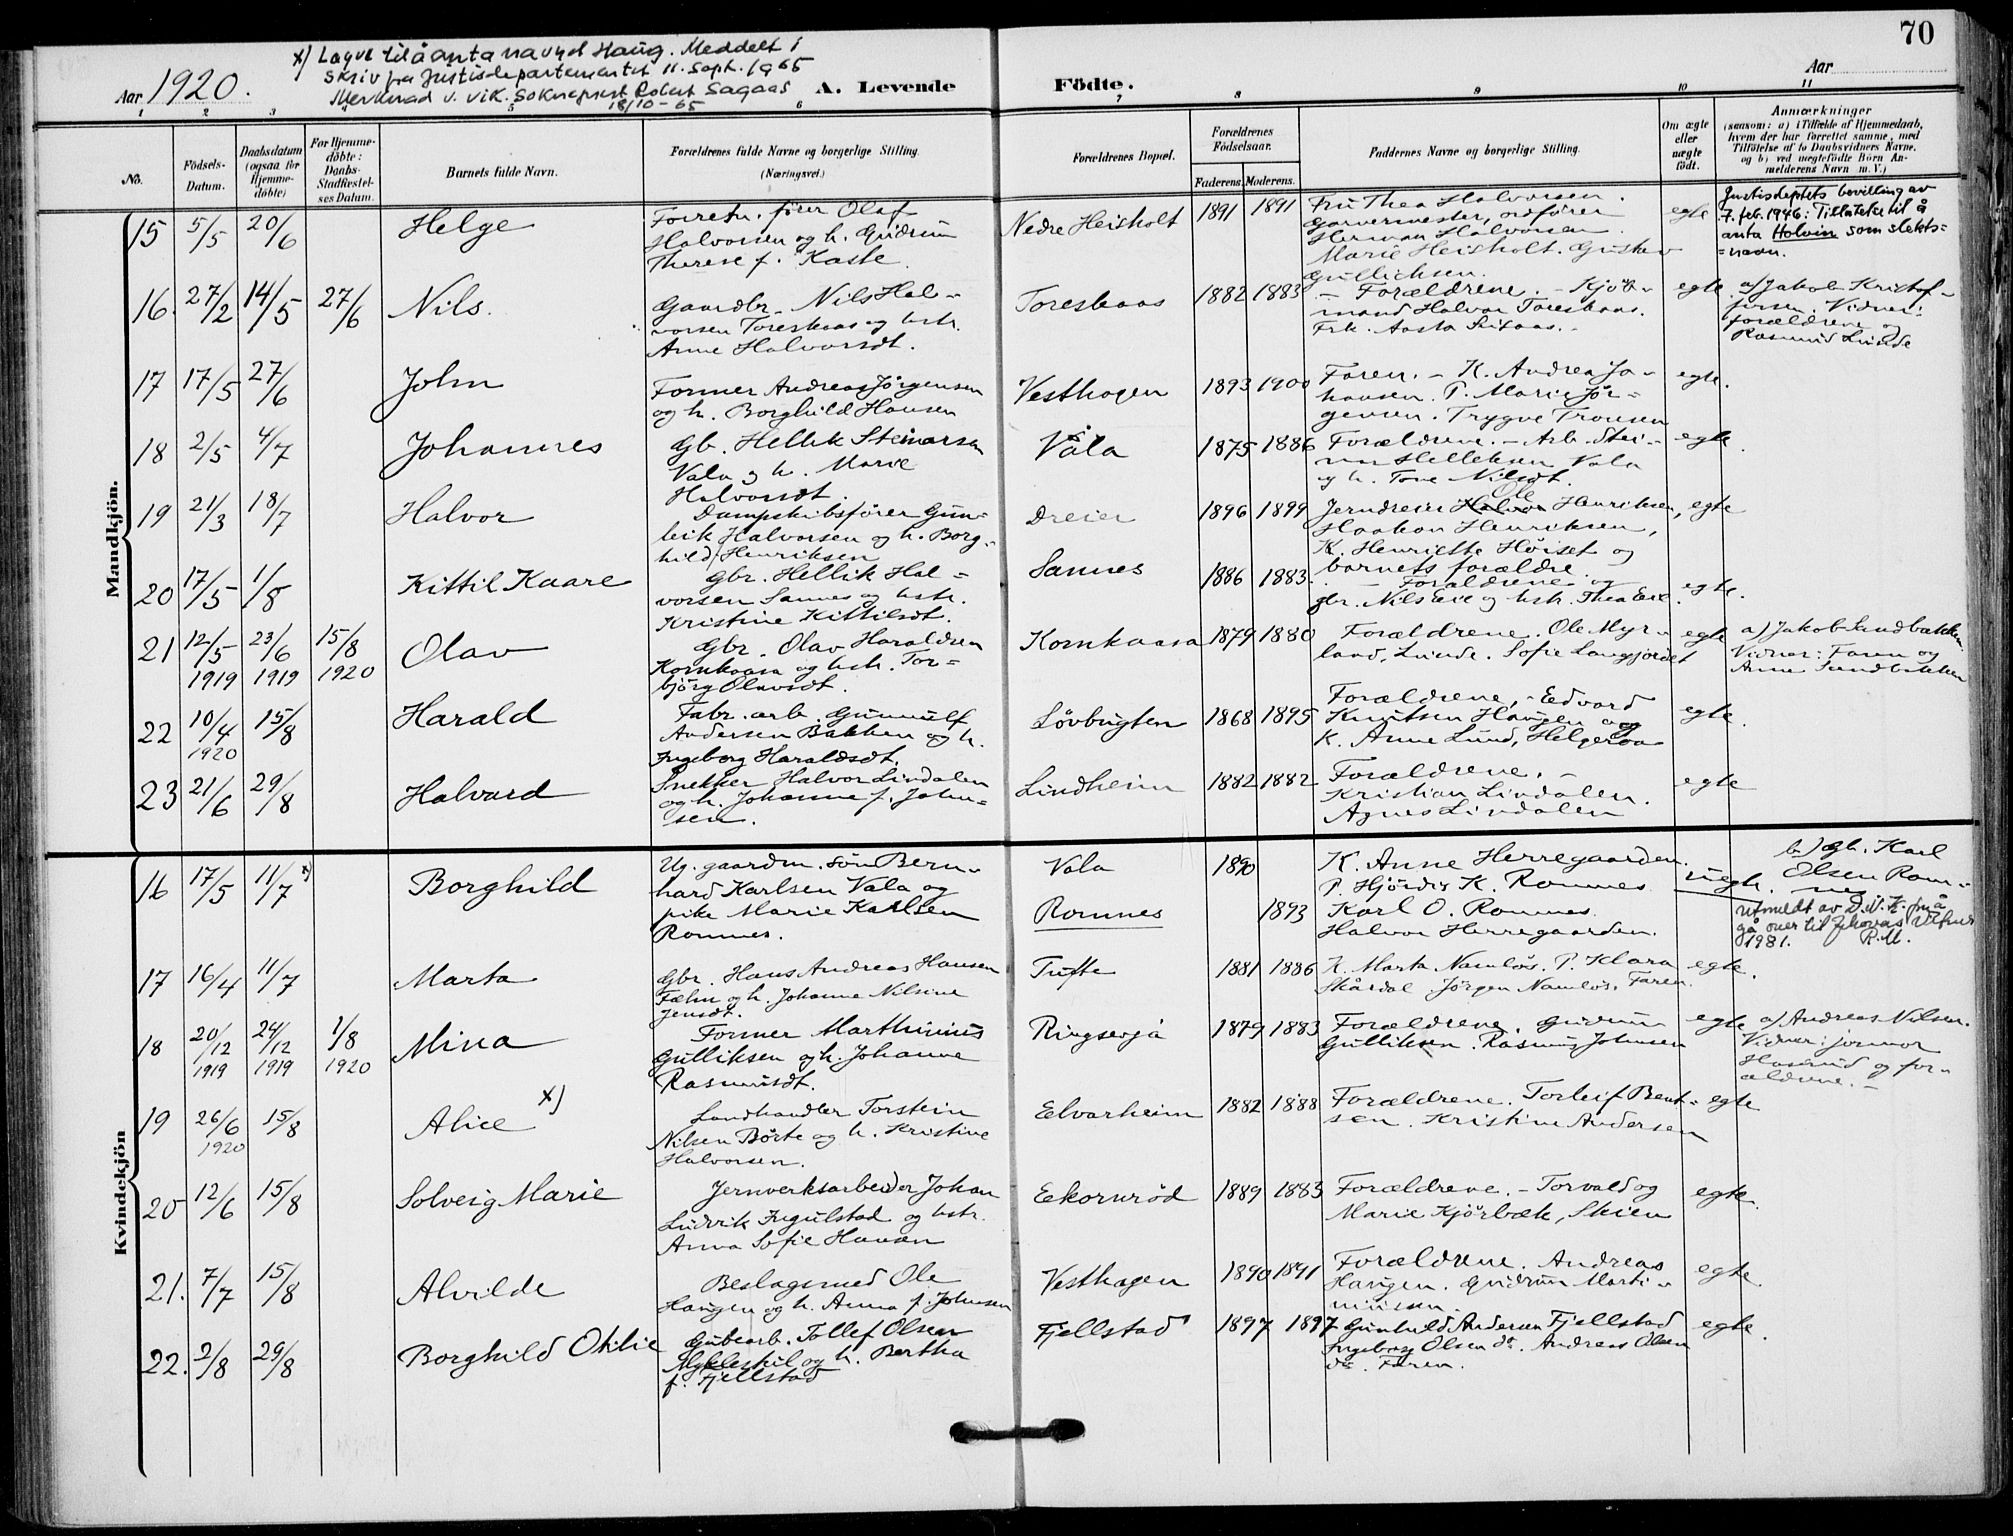 70
x) Løyve til å anta navnet Haug. Meddelt i
skriv fra Justisdepartementet 11. sept. 1965
Merknad v. vik. sokneprest Robert Sagaas
18/10-65
Aar 1920.
A. Levende Födte.
Aar
1 2 3 5 6 7 8 9 10 11
No.
Födsels-
Datum.
Daabsdatum
(ogsaa for
Hjemme-
döbte)
For Hjemme-
döbte:
Daabs-
Stadfæstel-
ses Datum.
Barnets fulde Navn.
Forældrenes fulde Navne og borgerlige Stilling.
(Næringsvei.)
Forældrenes Bopæl.
Forældrenes
Födselsaar.
Faderens. Moderens.
Faddernes Navne og borgerlige Stilling.
Om ægte
eller
uægte
födt.
Anmærkninger
(saasom: a) i Tilfælde af Hjemmedaab,
hvem der har forrettet samme, med
Tilföielse af to Daabsvidners Navne,
og b) ved uægtefödte Börn An-
melderens Navn m. V.)
Mandkjön.
15 5/5 20/6 Helge
Forretn. fører Olaf
Halvorsen og h. Gudrun
Therese f. Kaste.
Nedre Heisholt 1891 1891
Fru Thea Halvorsen.
Garvermester, ordfører
Herman Halvorsen.
Marie Heisholt. Gustav
Gullichsen.
egte
Justisdeptets bevilling av
7. feb. 1946: Tillatelse til å
anta Holvin som slekts=
=navn.
16. 27/2 14/5 27/6 Nils.
Gaardbr. Nils Hal-
vorsen Toreskaas og hstr.
Anne Halvorsdt.
Toreskaas 1882 1883
– Forældrene. – Kjöb-
mand Halvor Toreskaas.
Frk. Aasta
egte
a) Jakob Kristof-
fersen. Vidner:
forældrene og
Rasmus Linde
17 17/5 27/6 John
Former Andreas Jörgensen
og h. Borghild Hansen
Vesthagen 1893 1900
Faren. – K. Andrea Jo-
hansen. P. Marie Jör-
gensen. Trygve Tronsen
egte.
18 2/5 4/7 Johannes
Gb. Hellik Steinarsen
Vala og h. Marie
Halvorsdt.
Våla 1875 1886
Forældrene. – Arb. Stei-
nar Helleksen Vala
og h. Tone Nilsdt.
egte.
19 21/3 18/7 Halvor
Dampskibsfører Gun-
leik Halvorsen og h. Borg-
hild Henriksen
Dreier 1896 1899
Ole
Jerndreier Halvor Henriksen,
Haakon Henriksen,
K. Henriette Höiset og
barnets forældre.
egte
20 17/5 1/8 Kittil Kaare
Gbr. Hellik Hal-
vorsen Sannes og hstr.
Kristine Kittilsdt.
Sannes 1886 1883.
– Forældrene og
gbr. Nils Eie og hstr. Thea Eie.
egte.
21 12/5 1919 23/6 1919 15/8 1920 Olav
Gbr. Olav Haraldsen
Kornkaasa og hstr. Tor-
björg Olavsdt.
Kornkaasa 1879 1880
Forældrene. Ole Myr-
land, Lunde. Sofie Langjordet
egte
a) Jakob Sandbakken
Vidner: Faren og
Anne Sandbakken
22 10/4 1920 15/8 Harald
Fabr. arb. Gunnulf
Andersen Bakken og h.
Ingeborg Haraldsdt.
Løvbugten 1868 1895
Forældrene, – Edvard
Knutsen Haugen og
K. Anne Lund, Helgeroa
egte.
23 21/6 29/8 Halvard
Snekker Halvor Lindalen
og h. Johanne f. John-
sen.
Lindheim 1882 1882
Forældrene. –
Kristian Lindalen.
Agnes Lindalen
egte
Kvindekjön
16 17/5 11/7 x) Borghild
Ug. gaardm. søn Bern-
hard Karlsen Vala og
pike Marie Karlsen
Romnes.
Vala 1890
Romnes 1893
K. Anne Herregaarden.
P. Hjördis K. Romnes.
Karl O. Romnes.
Halvor Herregaarden.
uegte.
b) gb. Karl
Olsen Rom-
nes
Utmeldt av D.N.K. for å
gå over til Jehovas Vitner
1981. R.M.
17 16/4 11/7 Marta
Gbr. Hans Andreas Hansen
Fæhn og h. Johanne Nilsine
Jensdt.
Tufte 1881 1886
K. Marta Namløs. P. Klara
Skårdal. Jörgen Namløs. Faren.
egte.
18 20/12 1919 24/12 1919 1/8 1920 Mina
Former Marthinius
Gulliksen og h. Johanne
Rasmusdt.
Ringsevja 1879 1883
Forældrene. Gudrun
Gulliksen. Rasmus Johnsen
egte
a) Andreas Nilsen.
Vidner: jormor
Haserud og for-
ældrene. –
19 26/6 1920 15/8 Alice x)
Landhandler Torstein
Nilsen Børte og h. Kristine
Halvorsen.
Elvarheim 1882 1888
Forældrene. Torleif Bent-
sen. Kristine Andersen
egte
20 12/6 15/8 Solveig Marie
Jernverksarbeider Johan
Ludvik Ingulstad og hstr.
Anna Sofie Hansen
Ekornrød 1889 1883
Forældrene. – Torvald og
Marie Kjörbæk, Skien
egte.
21. 7/7 15/8 Alvilde
Beslagsmed Ole
Haugen og h. Anna f. Johnsen
Vesthagen 1890 1891
Forældrene. Andreas
Haugen. Gudrun Marti-
niussen.
egte.
22. 2/8 29/8 Borghild Otilie
Gubearb. Tollef Olsen
Mykleskil og h. Bertha
f. Fjellstad
Fjellstad 1897 1897
Gunhild Andersen Fjellstad
Ingeborg Olsen do. Andreas Olsen
do. Faren.
egte.